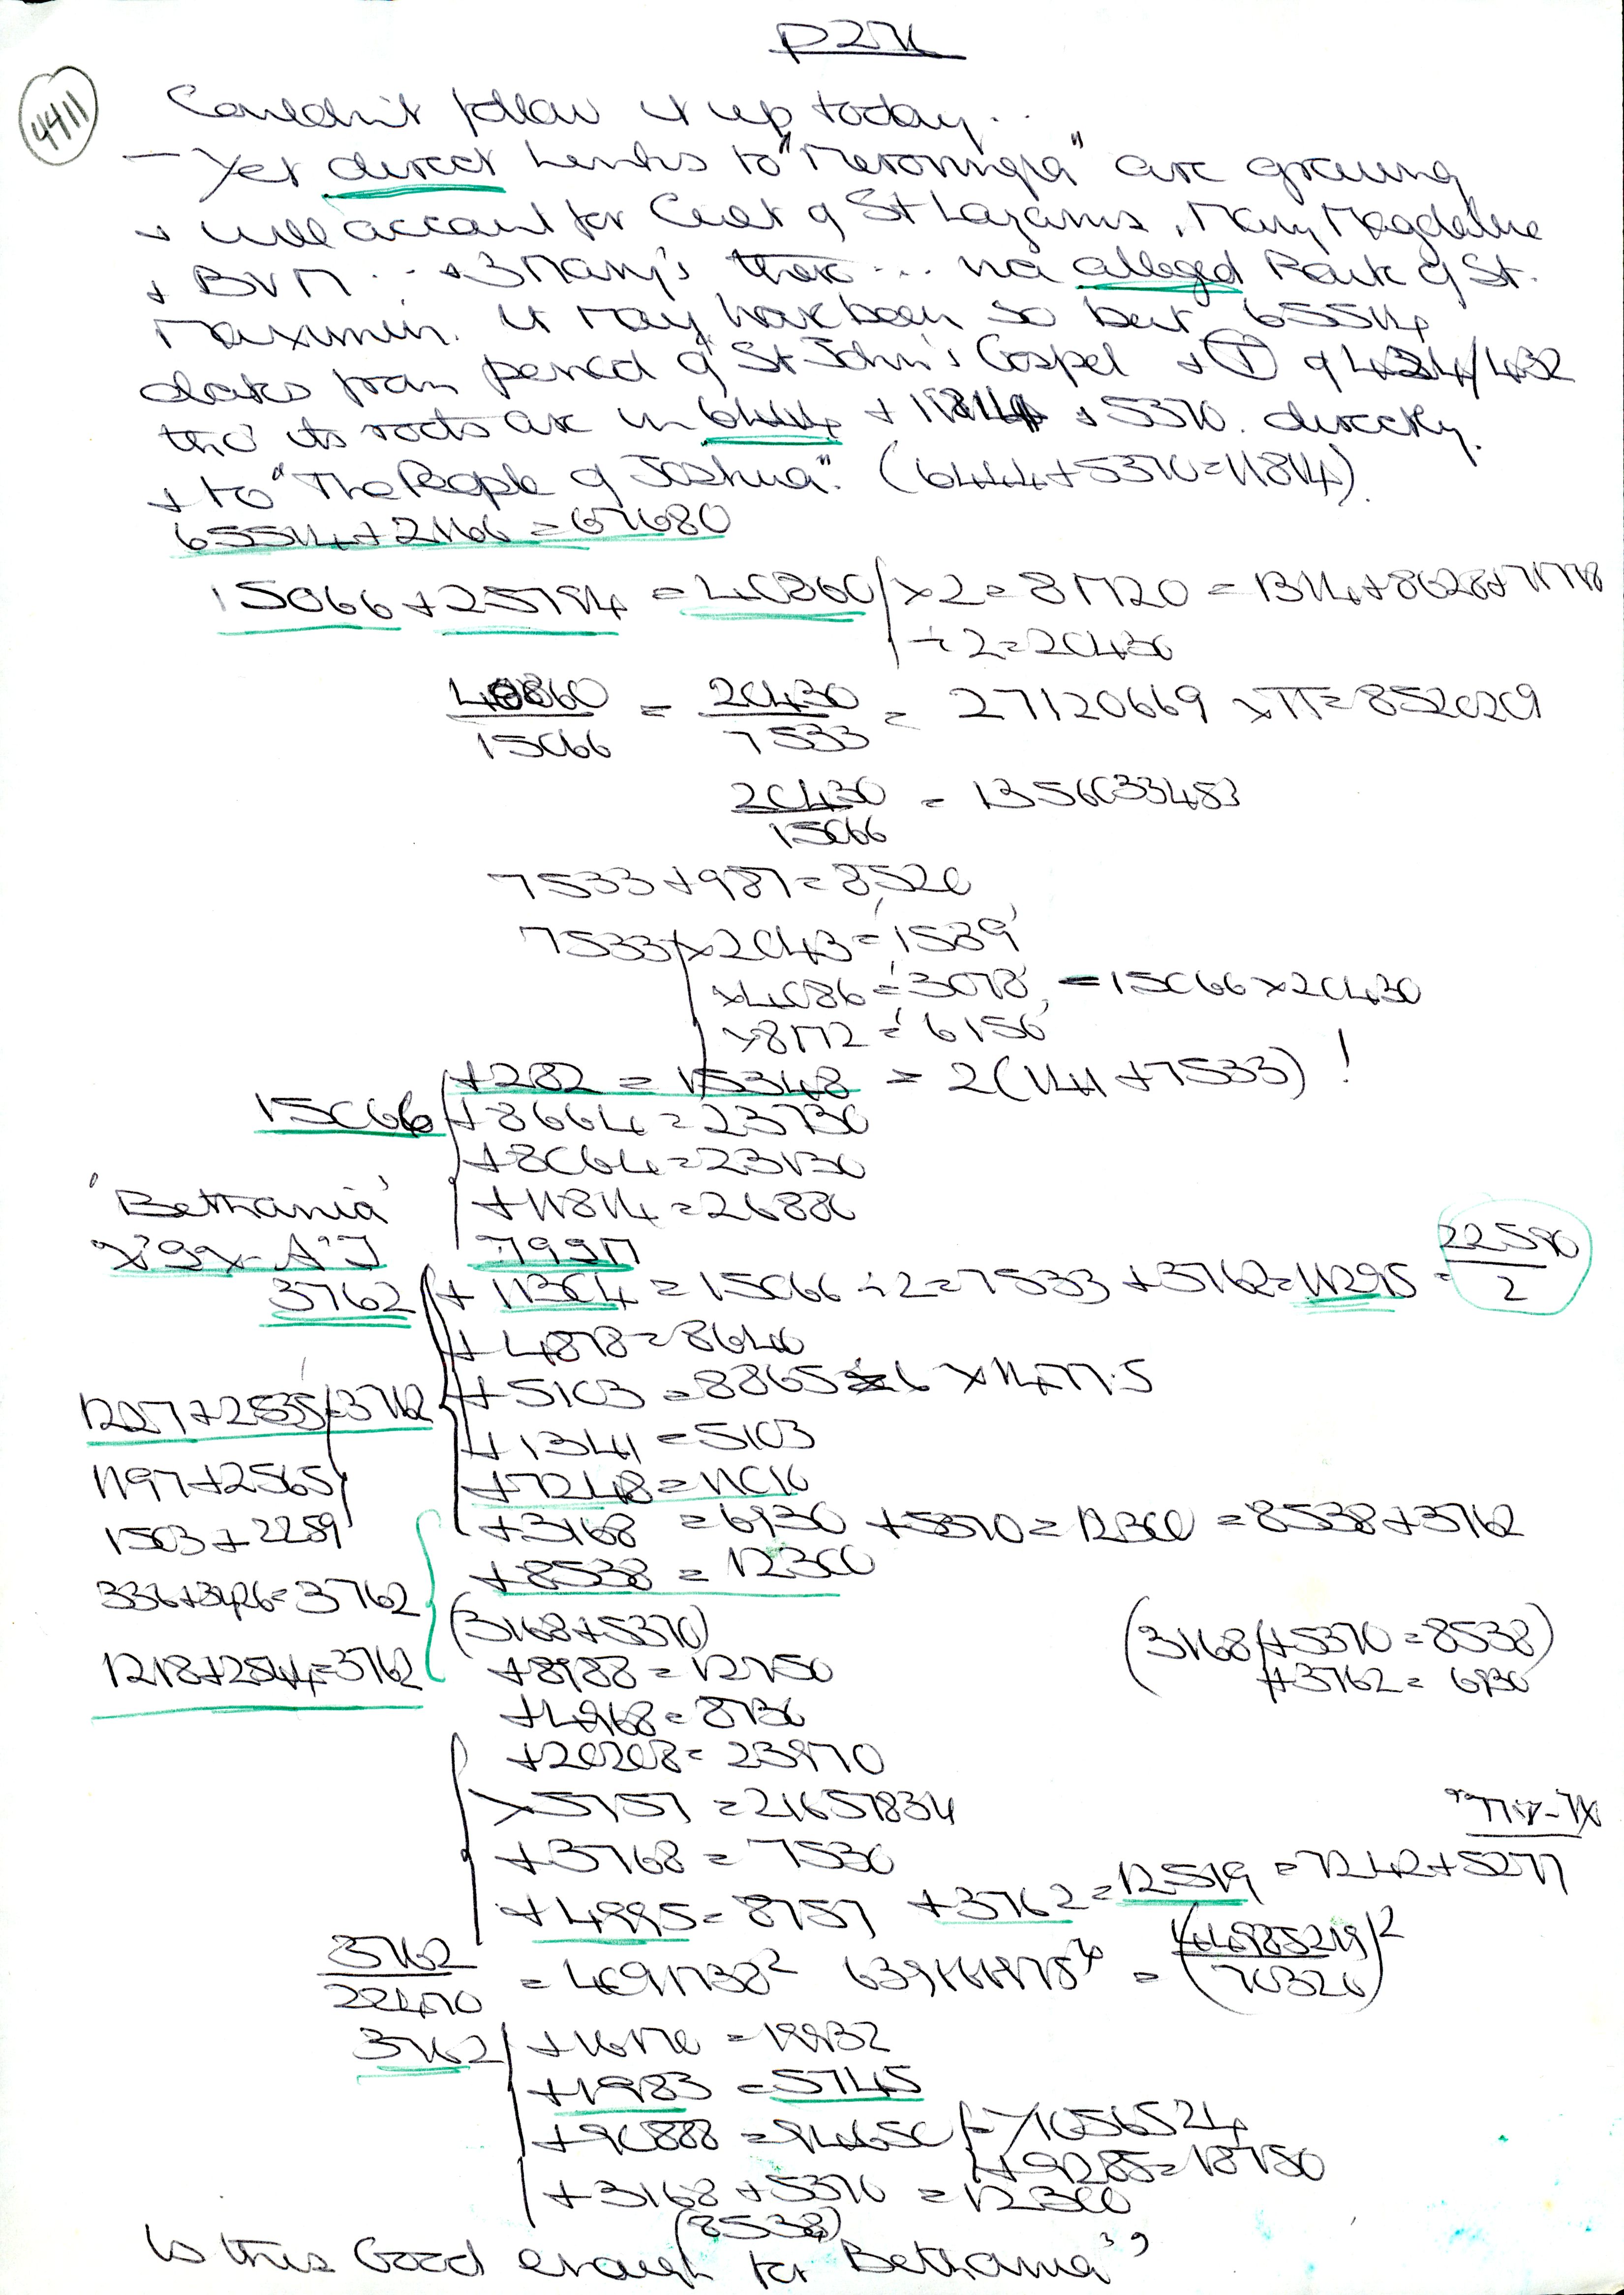 P271
4411
Couldn't follow it up today...
- Yet direct links to "Merovingia" are growing
+ will account for Cult of St Lazarus, Mary Magdalene
+ BVM... + 3 Mary's there... via alleged Park of St.
Maximin. It may have been so but 65514
dates from period of St John's Gospel + (T) of 434/432
tho' its roots are in 6444 + 11814 + 5370. directly.
+ to "The People of Joshua". (6444+5370=11814).
65514+2166=67680
15066+25794=40860 ×2=81720=1314+8628+71778
÷2=20430
40860/15066 = 20430/7533 = 27120669 ×π=8520209
20430/15066 = 1356033483
7533+987=8520
7533×2043='1539'
×4086='3078' =15066×20430
×8172='6156'
+282=15348=2(141+7533)!
15066 +8664=23730
+8064=23130
+11814=26880
'Bethania'
7991
3762 +11304=15066÷2=7533+3762=11295=22590/2
+4878=8640
+5103=8865=6×1477.5
1227+2535=3762
+1341=5103
1197+2565
+7248=11010
1503+2259
+3168=6930+5370=12300=8538+3762
+8538=12300
336+3426=3762
(3168+5370)
(3168+5370=8538)
+3762=6930
1218+2544=3762
+8988=12750
+4968=8730
+20208=23970
×5757=21657834
+3768=7530
+4995=8757+3762=12519=7242+5277
3762/22470 = 40917382
3762 +16170=19932
+1983=5745
+90888=94650
+9285=18750
+3168+5370=12300
(8538)
Is this Good enough for Bethania"?